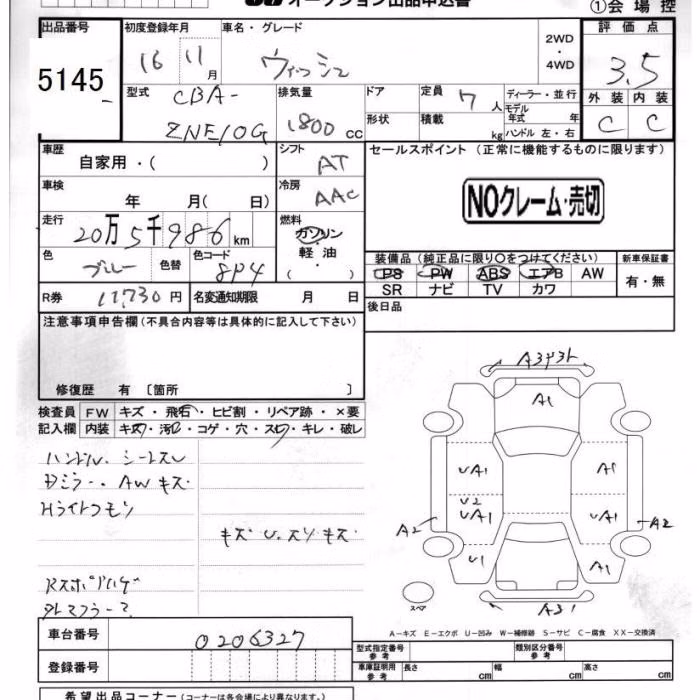 オークション出品申込書
①会場控
出品番号
5145
初度登録年月
16 11月
車名・グレード
ウィッシュ
2WD
・
4WD
評価点
3.5
外装 内装
C C
型式
CBA-
ZNE10G
排気量
1800 CC
ドア
形状
定員 7 人
積載 kg
ディーラー・並行
モデル年式 年
ハンドル 左・右
車歴
自家用・( )
シフト
AT
セールスポイント (正常に機能するものに限ります)
NOクレーム・売切
車検
年 月( 日)
冷房
AAC
走行
20万5千986km
燃料
ガソリン
・
軽油
( )
色
ブルー
色替
色コード
8P4
装備品 (純正品に限り○をつけてください)
PS PW ABS エアB AW
SR ナビ TV カワ
新車保証書
有・無
R券 11,730円
名変通知期限 月 日
後日品
注意事項申告欄 (不具合内容等は具体的に記入して下さい)
修復歴 有 〔箇所 〕
検査員 FW キズ・飛石・ヒビ割・リペア跡・×要
記入欄 内装 キズ・汚レ・コゲ・穴・スレ・キレ・破レ
ハンドル、シートスレ
Dミラー、AWキズ
Hライトクモリ
キズ U、スリキズ
A3Y3ト
A1
UA1
A1
U2
UA1
UA1
A2
A2
U1
A1
A31
スペア
A−キズ E−エクボ U−凹み W−補修跡 S−サビ C−腐食 XX−交換済
車台番号
0206327
登録番号
型式指定番号
参考
類別区分番号
参考
車庫証明用
参考
長さ cm
幅 cm
高さ cm
希望出品コーナー (コーナーは各会場により異なります。)